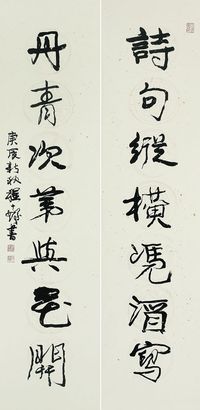 詩句縱橫憑酒寫
丹青次第與花開
庚辰新秋
書